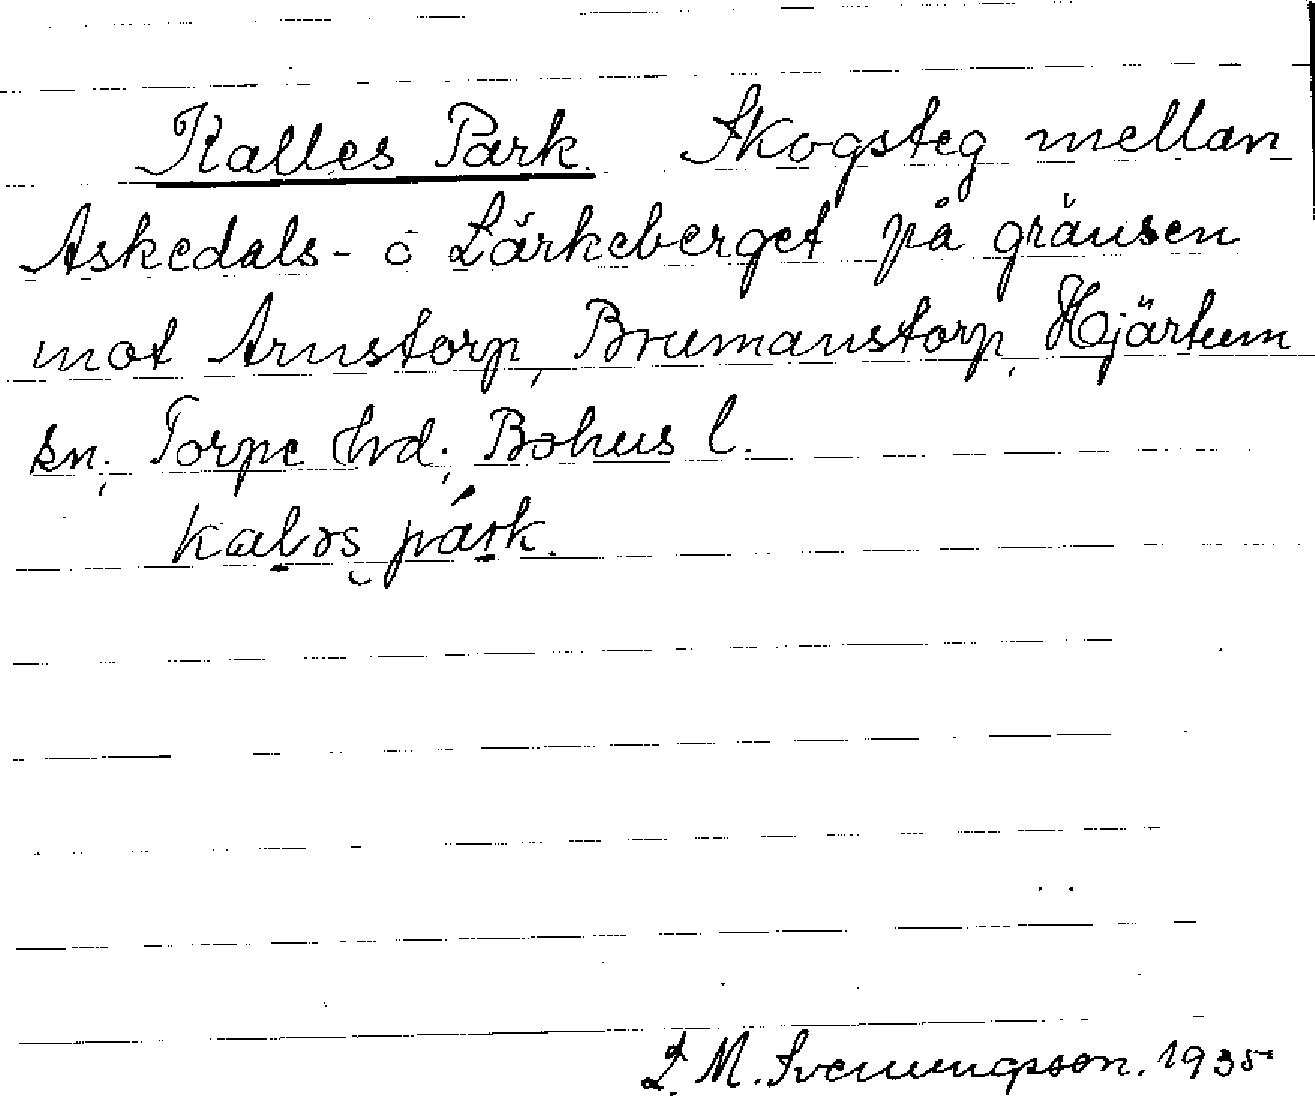 Kalles Park. Skogsteg mellan
Askedals- o Lärkeberget på gränsen
mot Arnstorp, Brumanstorp, Hjärtum
sn; Torpe hd; Bohus l.
kaləs párk.
L. M. Svenungsson. 1935